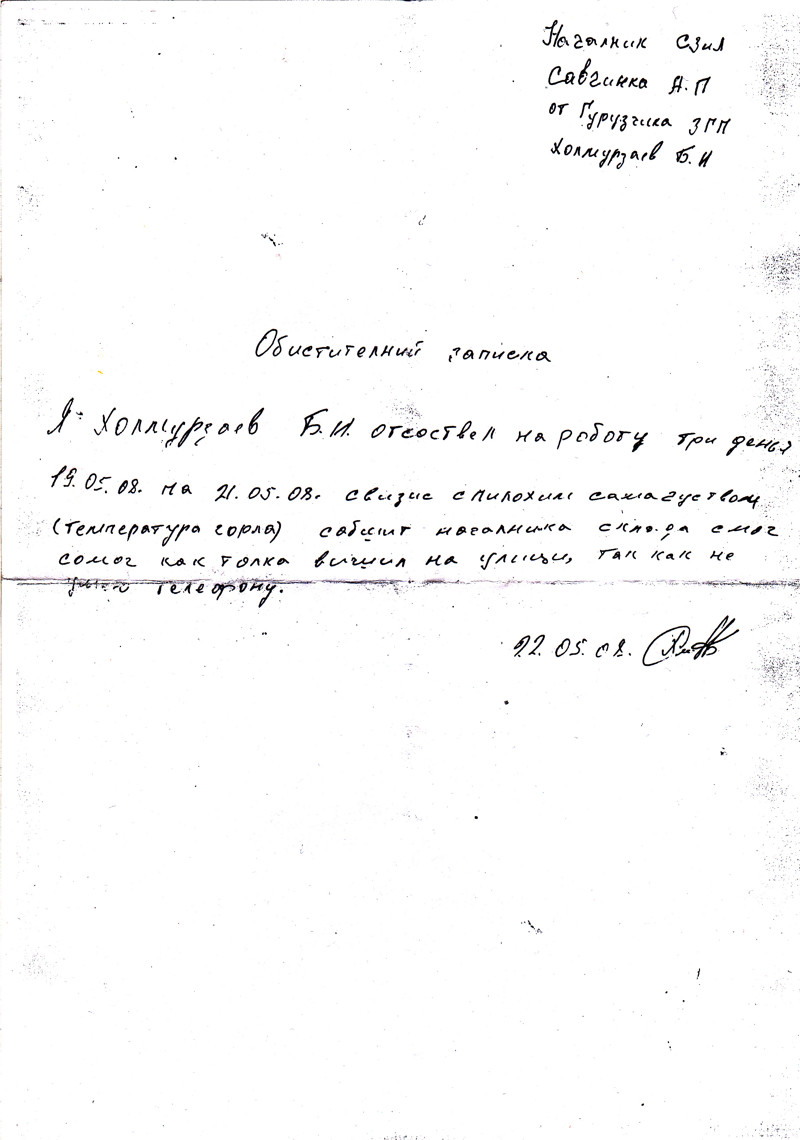 Началник СЗИЛ
Савчинка А.П
от Гурузчика ЗГП
Холмурзаев Б.И
Обиститителний записка
Я Холмурзаев Б.И. отсоствел на роботу три денья
19.05.08. на 21.05.08. свизис с пилохим самачуством
(температура горла) сабшит началника склада смог
сомог как толка вишил на улици, так как не
телефону.
22.05.08.